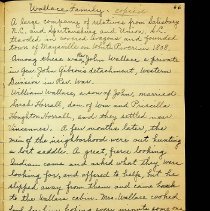 66
Wallace Family - copied
A large company of relatives from Salisbury
N.C. and Spartansburg and Union, S.C.
traveled in covered wagons and founded
town of Maysville on White River in 1808.
Among these was John Wallace a private
in Gen. John Gibsons attachment, Western
Division in Rev. War.
William Wallace, a son of John, married
Sarah Horrall, dau of Wm and Priscilla
Houghton Horrall, and they settled near
A few months later, the
men of the neighborhood were out hunting
a lost saddle. A great, fierce looking
Indian came and asked what they were
looking for, and offered to help, but he
slipped away from them and came back
to the Wallace cabin. Mrs. Wallace cooked